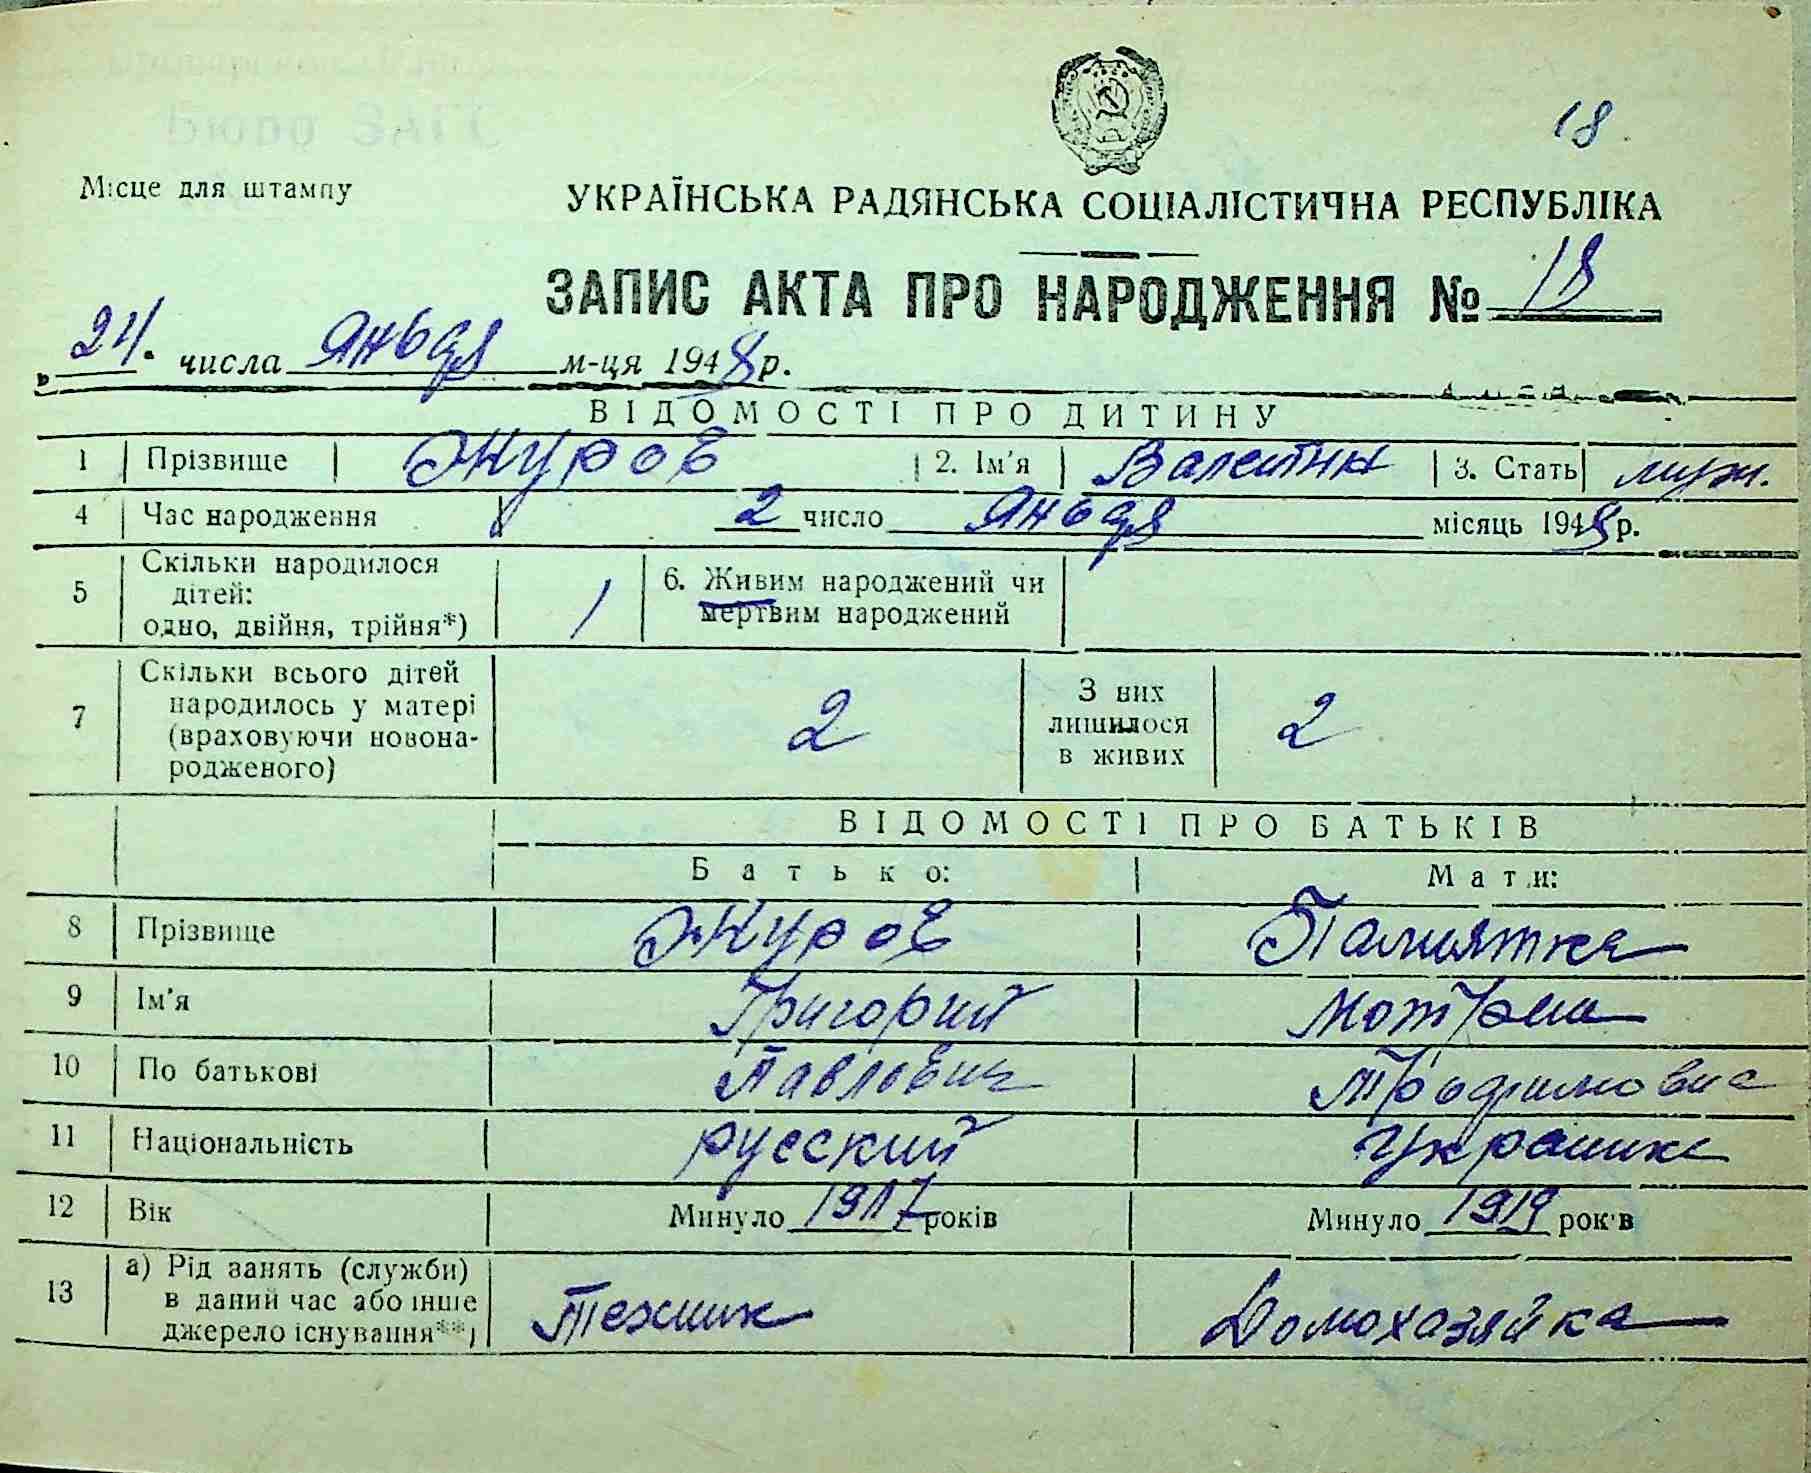 18.
Місце для штампу
УКРАЇНСЬКА РАДЯНСЬКА СОЦІАЛІСТИЧНА РЕСПУБЛІКА
ЗАПИС АКТА ПРО НАРОДЖЕННЯ № 18
24. числа Января м-ця 1948 р.
ВІДОМОСТІ ПРО ДИТИНУ
1 Прізвище Журов 2. Ім'я Валентин 3. Стать муж.
4 Час народження 2 число Января місяць 1948 р.
5 Скільки народилося дітей: одно, двійня, трійня*) 1 6. Живим народжений чи мертвим народжений
7 Скільки всього дітей народилось у матері (враховуючи новонародженого) 2 З них лишилося в живих 2
ВІДОМОСТІ ПРО БАТЬКІВ
Батько: Мати:
8 Прізвище Журов Памятка
9 Ім'я Григорий Мотрена
10 По батькові Павлович Трофимовна
11 Національність русский украинка
12 Вік Минуло 1917 років Минуло 1919 років
13 а) Рід занять (служби) в даний час або інше джерело існування**) Техник Домохазяйка